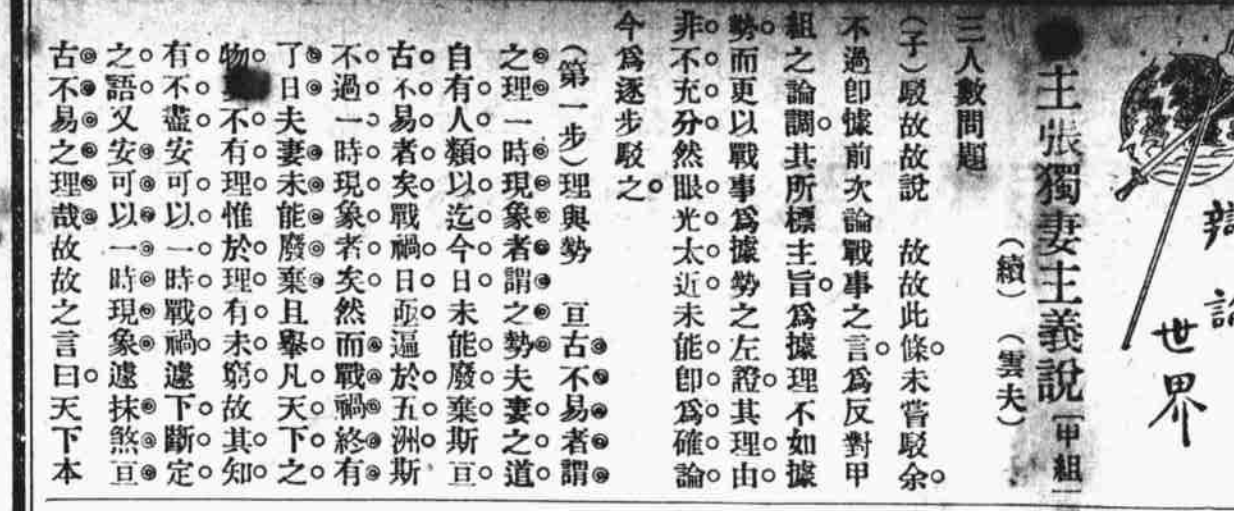 辯論
世界
主張獨妻主義說［甲組］
（續）（雲夫）
三人數問題
（子）駁故故說　故故此條未嘗駁余
不過卽據前次論戰事之言爲反對甲
組之論調其所標主旨爲據理不如據
勢而更以戰事爲據勢之左證其理由
非不充分然眼光太近未能卽爲確論
今爲逐步駁之
（第一步）理與勢　亘古不易者謂
之理一時現象者謂之勢夫妻之道
自有人類以迄今日未能廢棄斯亘
古不易者矣戰禍日亟遍於五洲斯
不過一時現象者矣然而戰禍終有
了日夫妻未能廢棄且舉凡天下之
物不有理惟於理有未窮故其知
有不盡安可以一時戰禍遽下斷定
之語又安可以一時現象遽抹煞亘
古不易之理哉故故之言曰天下本